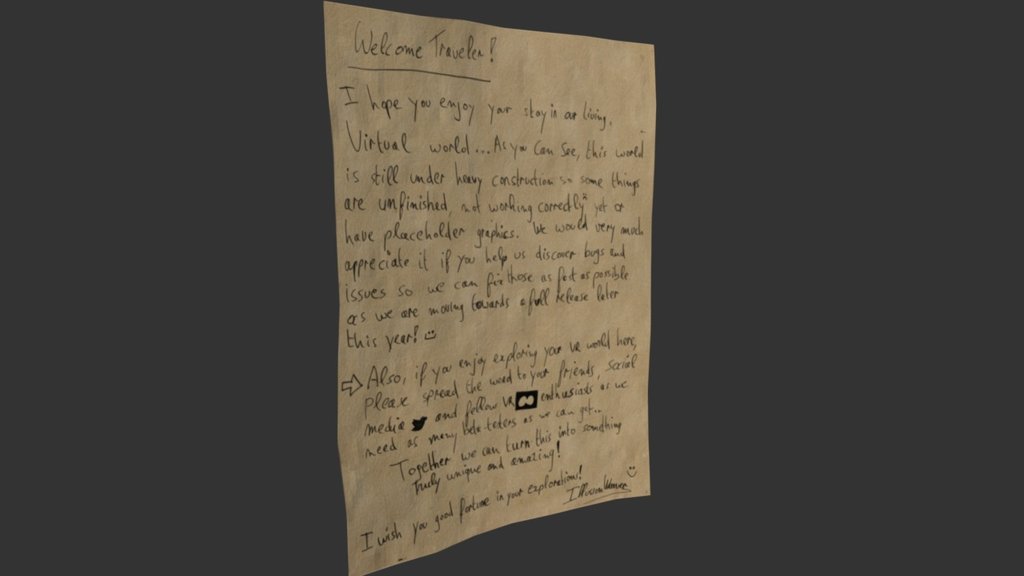 Welcome Traveler!
I hope you enjoy your stay in our living,
Virtual world... As you can see, this world
is still under heavy construction so some things
are unfinished, not working correctly yet or
have placeholder graphics. We would very much
appreciate it if you help us discover bugs and
issues so we can fix those as fast as possible
as we are moving towards a full release later
this year!
Also, if you enjoy exploring your VR world here,
please spread the word to your friends, social
media and fellow VR enthusiasts as we
need as many beta testers as we can get..
Together we can turn this into something
Truly unique and amazing!
I wish you good fortune in your exploration!
IllusionWeaver